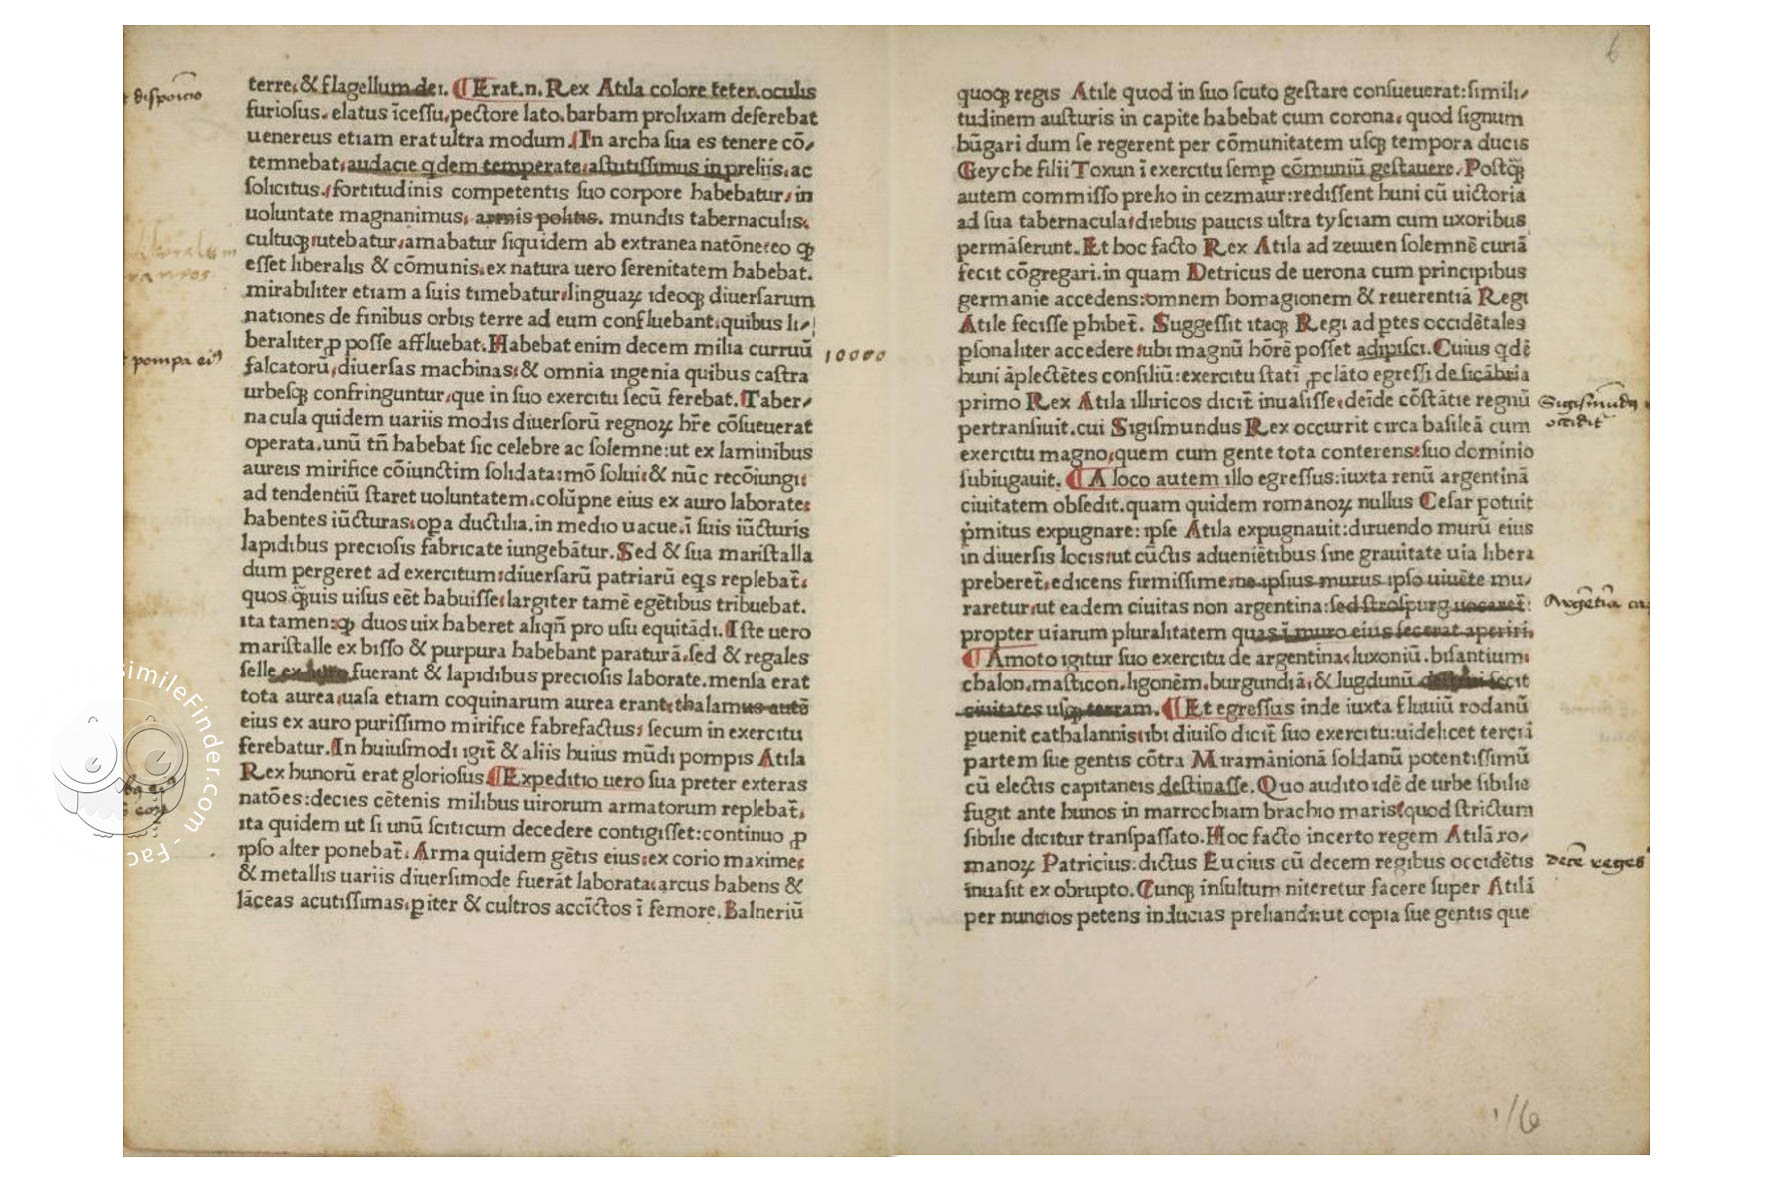 terre, & flagellum dei. Erat .n. Rex Atila colore teter, oculis
furiosus, elatus īcessu, pectore lato, barbam prolixam deferebat
uenereus etiam erat ultra modum. In archa sua es tenere cō,
temnebat, audacie qdem temperate, astutissimus in preliis, ac
solicitus, fortitudinis competentis suo corpore habebatur, in
uoluntate magnanimus, armis politis. mundis tabernaculis,
cultuqꝫ utebatur, amabatur siquidem ab extranea natōne: eo qꝫ
esset liberalis & cōmunis, ex natura uero serenitatem habebat.
mirabiliter etiam a suis timebatur, linguaꝝ ideoqꝫ diuersarum
nationes de finibus orbis terre ad eum confluebant, quibus li,
beraliter ꝓ posse affluebat. Habebat enim decem milia curruū
falcatorū, diuersas machinas, & omnia ingenia quibus castra
urbesqꝫ confringuntur, que in suo exercitu secū ferebat. Taber,
nacula quidem uariis modis diuersorū regnoꝝ hr̄e cōsueuerat
operata, unū tn̄ habebat sic celebre ac solemne: ut ex laminibus
aureis mirifice cōiunctim solidata: mō solui, & nūc recōiungi:
ad tendentiū staret uoluntatem, colūpne eius ex auro laborate:
habentes iūcturas, opa ductilia, in medio uacue, ī suis iūcturis
lapidibus preciosis fabricate iungebātur. Sed & sua maristalla
dum pergeret ad exercitum: diuersarū patriarū eqs replebat̄,
quos qꝫuis uisus eēt habuisse, largiter tamē egētibus tribuebat.
ita tamen: qꝫ duos uix haberet aliqn̄ pro usu equitādi. Iste uero
maristalle ex bisso & purpura habebant paraturā, sed & regales
selle ex auro fuerant & lapidibus preciosis laborate. mensa erat
tota aurea, uasa etiam coquinarum aurea erant, thalamus autē
eius ex auro purissimo mirifice fabrefactus, secum in exercitu
ferebatur. In huiusmodi igit̄ & aliis huius mūdi pompis Atila
Rex hunorū erat gloriosus. Expeditio uero sua preter exteras
natōes: decies cētenis milibus uirorum armatorum replebat̄,
ita quidem ut si unū sciticum decedere contigisset: continuo ꝓ
ipso alter ponebat̄. Arma quidem gētis eius, ex corio maxime:
& metallis uariis diuersimode fuerāt laborata, arcus habens &
lāceas acutissimas, piter & cultros accīctos ī femore. Balneriū
dispoicio
pompa eiꝰ
10000
6
quoqꝫ regis Atile quod in suo scuto gestare consueuerat: simili,
tudinem austuris in capite habebat cum corona, quod signum
hūgari dum se regerent per cōmunitatem usqꝫ tempora ducis
Geyche filii Toxun ī exercitu semꝑ cōmuniū gestauere. Postqꝫ
autem commisso prelio in cezmaur: redissent huni cū uictoria
ad sua tabernacula, diebus paucis ultra tysciam cum uxoribus
permāserunt. Et hoc facto Rex Atila ad zeuuen solemnē curiā
fecit cōgregari. in quam Detricus de uerona cum principibus
germanie accedens: omnem homagionem & reuerentiā Regi
Atile fecisse ꝑhibet̄. Suggessit itaqꝫ Regi ad ptes occidētales
psonaliter accedere, ubi magnū hōrē posset adipisci. Cuius qdē
huni āplectētes consiliū: exercitu statī ꝓclāto egressi de sicābria
primo Rex Atila illiricos dicit̄ inuasisse, deīde cōstātie regnū
pertransiuit, cui Sigismundus Rex occurrit circa basileā cum
exercitu magno, quem cum gente tota conterens: suo dominio
subiugauit. A loco autem illo egressus: iuxta renū argentinā
ciuitatem obsedit, quam quidem romanoꝝ nullus Cesar potuit
pmitus expugnare: ipse Atila expugnauit: diruendo murū eius
in diuersis locis, ut cūctis adueniētibus sine grauitate uia libera
preberet̄, edicens firmissime: ne ipsius murus ipso uiuēte mu,
raretur, ut eadem ciuitas non argentina: sed strospurg uocaret̄:
propter uiarum pluralitatem quas ī muro eius fecerat aperiri.
Amoto igitur suo exercitu de argentina, luxoniū. bisantium:
chalon, masticon, ligonēm, burgundiā, & lugdunū destrui fecit
ciuitates usqꝫ terram. Et egressus inde iuxta fluuiū rodanū
puenit cathalannis, ibi diuiso dicit̄ suo exercitu: uidelicet terciā
partem sue gentis cōtra Miramānionā soldanū potentissimū
cū electis capitaneis destinasse. Quo audito idē de urbe sibilie
fugit ante hunos in marrochiam brachio maris, quod strictum
sibilie dicitur transpassato. Hoc facto incerto regem Atilā ro,
manoꝝ Patricius: dictus Eucius cū decem regibus occidētis
inuasit ex obrupto. Cunqꝫ insultum niteretur facere super Atilā
per nuncios petens inducias preliandi: ut copia sue gentis que
occidit
decē reges
1/6
simileFinder.com - Fac